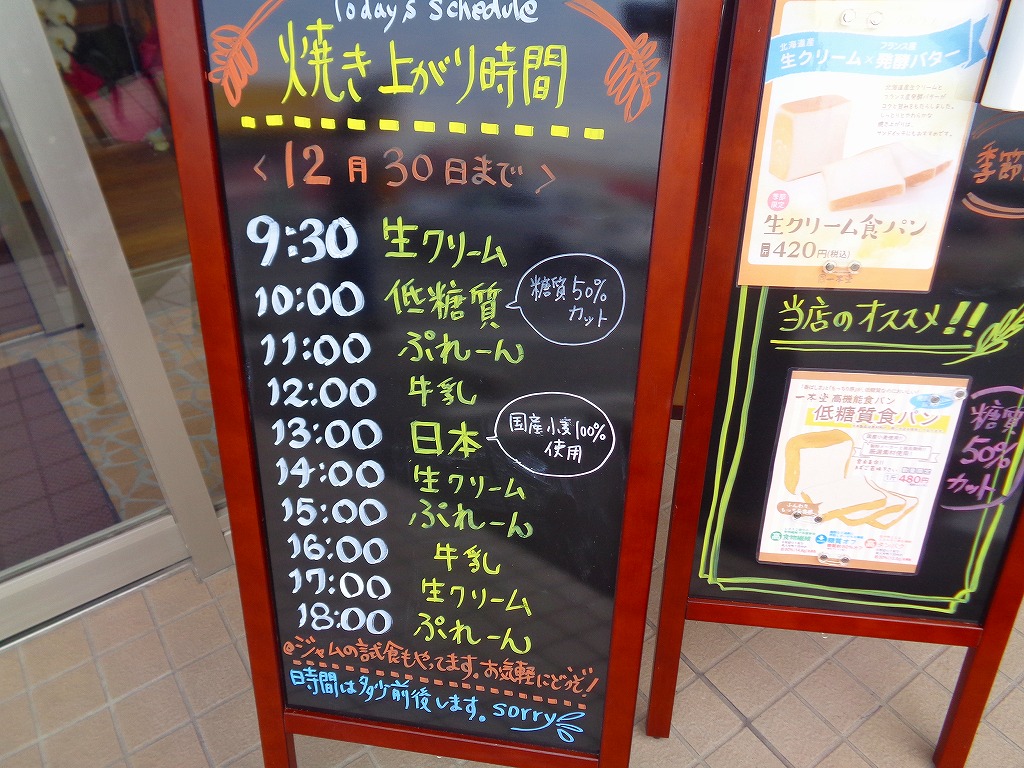 Today's Schedule
焼き上がり時間
〈 12月30日まで 〉
9:30 生クリーム
10:00 低糖質
糖質50%
カット
11:00 ぷれーん
12:00 牛乳
13:00 日本
国産小麦100%
使用
14:00 生クリーム
15:00 ぷれーん
16:00 牛乳
17:00 生クリーム
18:00 ぷれーん
@ジャムの試食もやってます。お気軽にどうぞ!
時間は多少前後します。sorry
北海道産
フランス産
生クリーム×発酵バター
季節
限定
生クリーム食パン
1斤420円(税込)
季節
当店のオススメ!!
一本堂 高機能食パン
低糖質食パン
1斤480円
食物繊維
糖質オフ
糖質
50%
カット